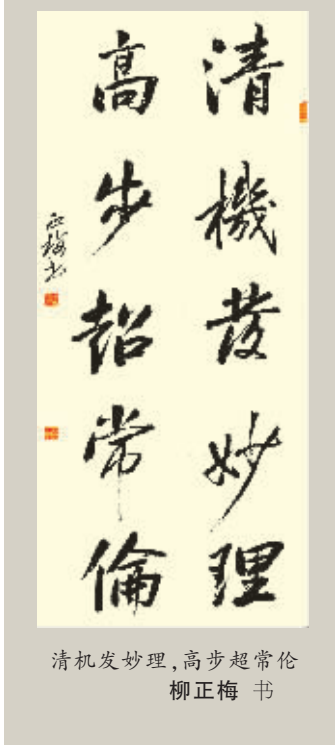 清機發妙理
高步超常倫
正梅书
清机发妙理,高步超常伦
柳正梅 书